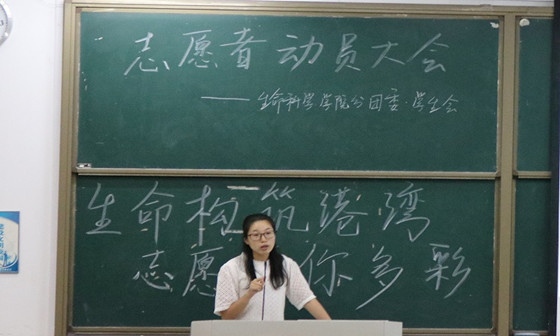 志愿者动员大会
——生命科学学院分团委·学生会
生命构筑港湾
志愿 你多彩